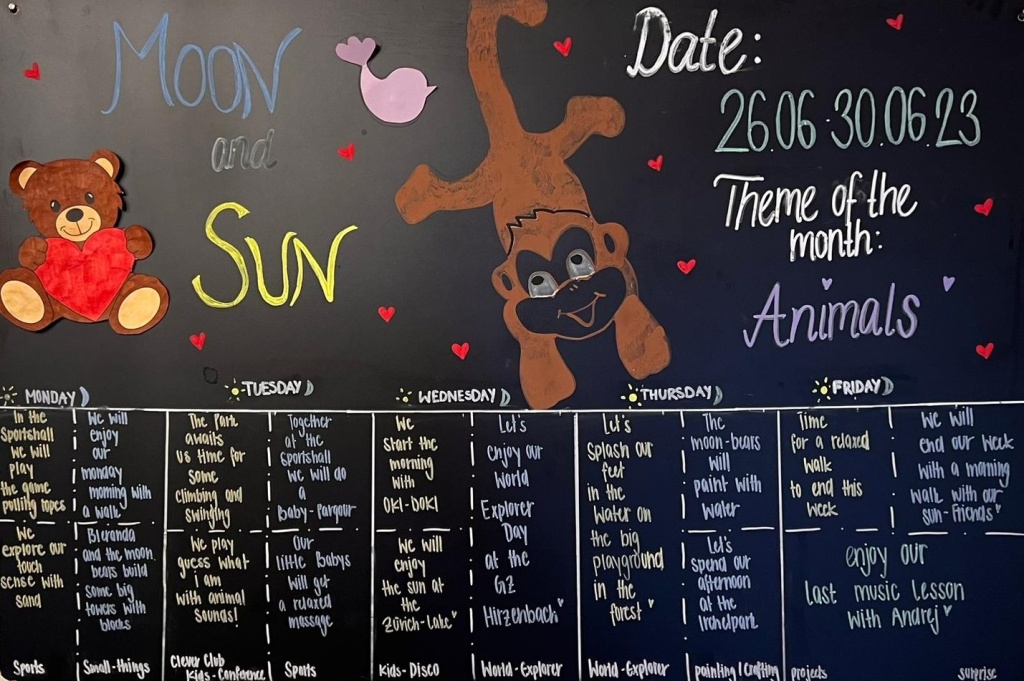 Moon
and
Sun
Date:
26.06-30.06.23
Theme of the
month:
Animals
MONDAY
In the
Sportshall
we will
play
the game
pulling ropes
We
explore our
touch
sense with
sand
Sports
We will
enjoy
our
monday
morning with
a walk
Bleranda
and the moon
bears build
some big
towers with
blocks
Small-things
TUESDAY
The Park
awaits
us time for
some
climbing and
swinging
We play
guess what
i am
with animal
sounds!
Clever Club
Kids-Conference
Together
at the
sportshall
we will do
a
Baby-Parqour
Our
little Babys
will get
a relaxed
massage
Sports
WEDNESDAY
We
start the
morning
with
OKI-DOKI
We will
enjoy
the sun at
the
Zürich-Lake
Kids-Disco
Let's
enjoy our
World
Explorer
Day
at the
GZ
Hirzenbach
World-Explorer
THURSDAY
Let's
splash our
feet
in the
water on
the big
playground
in the
forest
World-Explorer
The
moon-bears
will
paint with
water
Let's
spend our
afternoon
at the
Irchelpark
painting/Crafting
FRIDAY
Time
for a relaxed
walk
to end this
week
We will
end our week
with a morning
walk with our
sun-Friends
enjoy our
last music lesson
with Andrej
projects
surprise